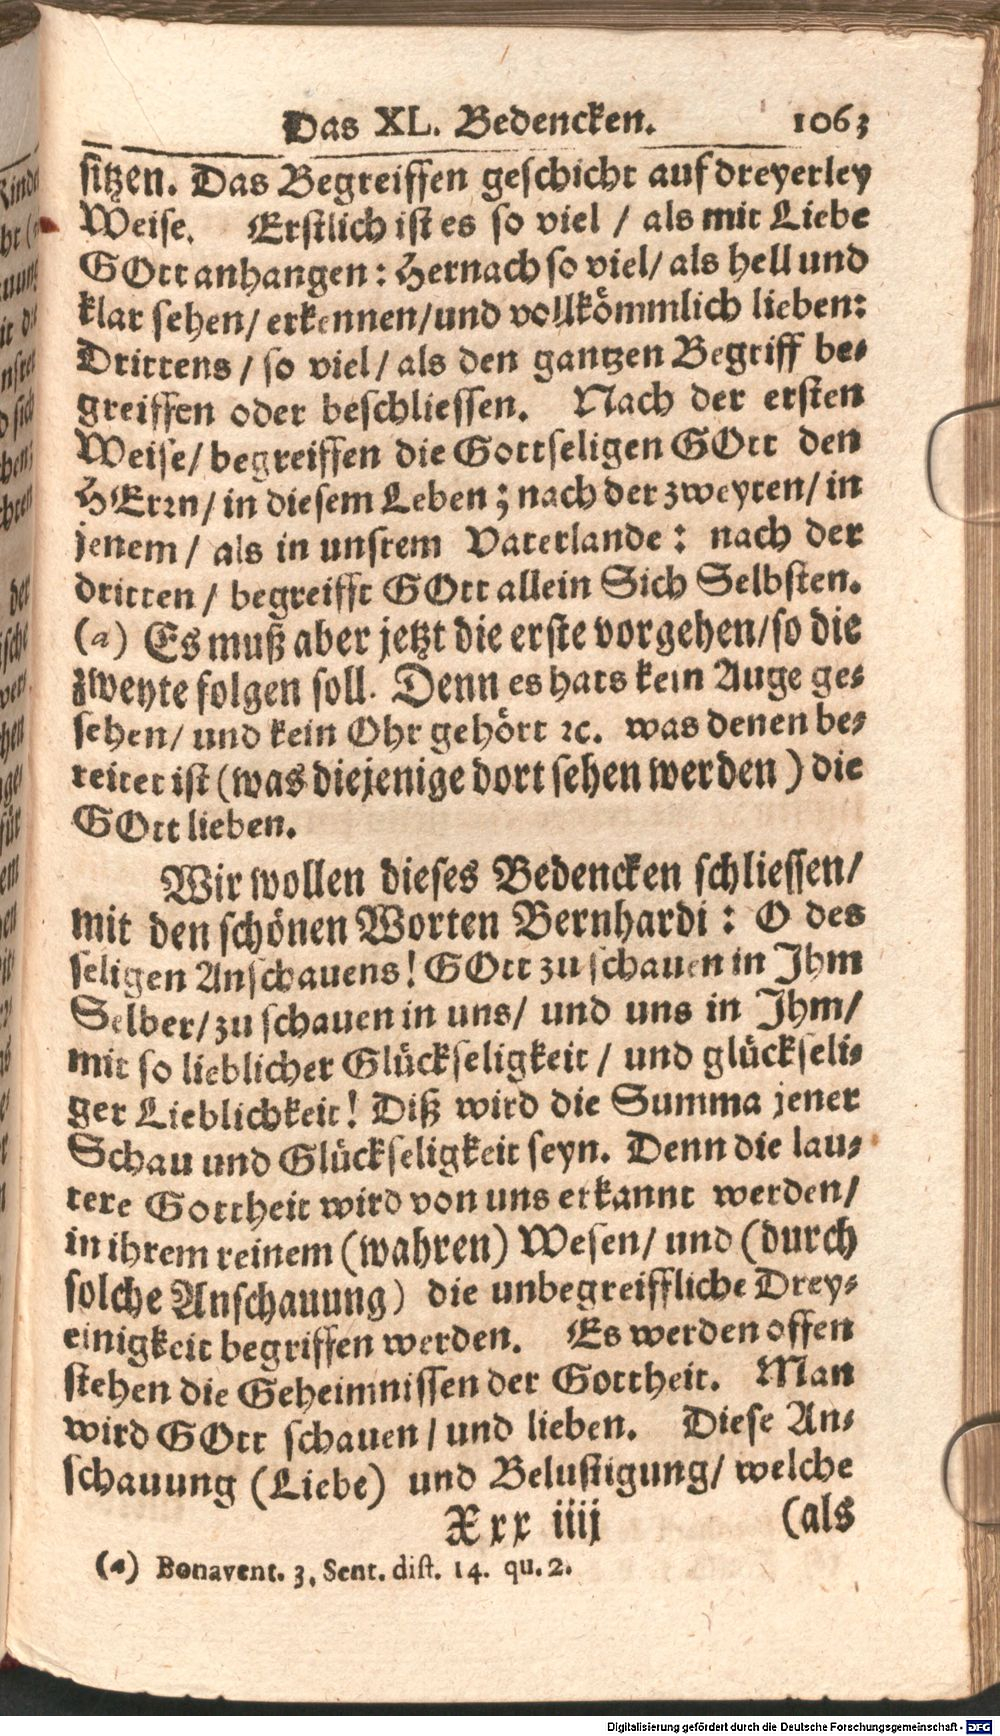 Das XL. Bedencken. 1063
sitzen. Das Begreiffen geschicht auf dreyerley
Weise. Erstlich ist es so viel / als mit Liebe
GOtt anhangen: Hernach so viel/ als hell und
klar sehen/ erkennen/und vollkömmlich lieben:
Drittens / so viel/ als den gantzen Begriff be-
greiffen oder beschliessen. Nach der ersten
Weise/ begreiffen die Gottseligen GOtt den
HErrn/ in diesem Leben; nach der zweyten/ in
jenem / als in unsrem Vaterlande: nach der
dritten / begreifft GOtt allein Sich Selbsten.
(a) Es muß aber jetzt die erste vorgehen/so die
zweyte folgen soll. Denn es hats kein Auge ge-
sehen/ und kein Ohr gehört ꝛc. was denen be-
reitet ist (was diejenige dort sehen werden) die
GOtt lieben.
Wir wollen dieses Bedencken schliessen/
mit den schönen Worten Bernhardi: O des
seligen Anschauens! GOtt zu schauen in Ihm
Selber/ zu schauen in uns/ und uns in Ihm/
mit so lieblicher Glückseligkeit / und glückseli-
ger Lieblichkeit! Diß wird die Summa jener
Schau und Glückseligkeit seyn. Denn die lau-
tere Gottheit wird von uns erkannt werden/
in ihrem reinem (wahren) Wesen/ und (durch
solche Anschauung) die unbegreiffliche Drey-
einigkeit begriffen werden. Es werden offen
stehen die Geheimnissen der Gottheit. Man
wird GOtt schauen / und lieben. Diese An-
schauung (Liebe) und Belustigung/ welche
Xxx iiij (als
(a) Bonavent. 3. Sent. dist. 14. qu. 2.
Digitalisierung gefördert durch die Deutsche Forschungsgemeinschaft - DFG